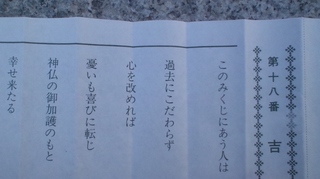 第十八番 吉
このみくじにあう人は
過去にこだわらず
心を改めれば
憂いも喜びに転じ
神仏の御加護のもと
幸せ来たる